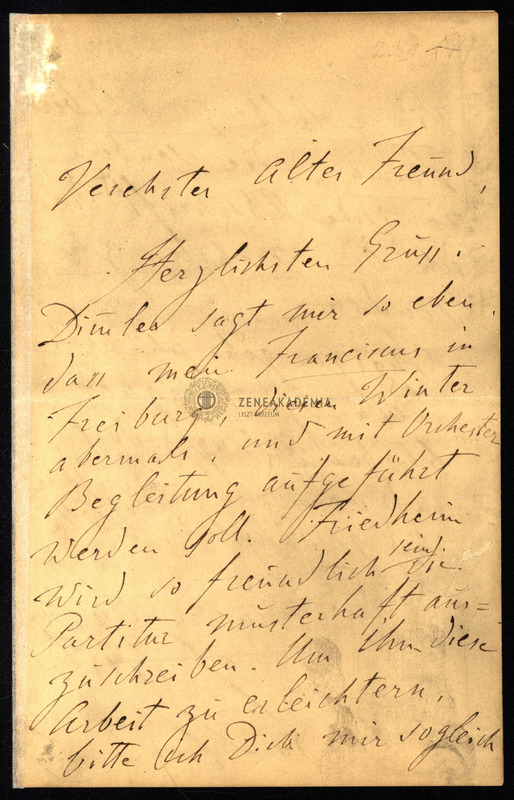 Verehrter alter Freund,
Herzlichsten Gruss.
Dimler sagt mir so eben,
dass mein Franciscus in
Freiburg, diesen Winter
abermals, und mit Orchester
Begleitung aufgeführt
werden soll. Friedheim
wird so freundlich sein, die
Partitur musterhaft aus=
zuschreiben. Um ihm diese
Arbeit zu erleichtern,
bitte ich Dich mir sogleich
ZENEAKADÉMIA
LISZT MÚZEUM